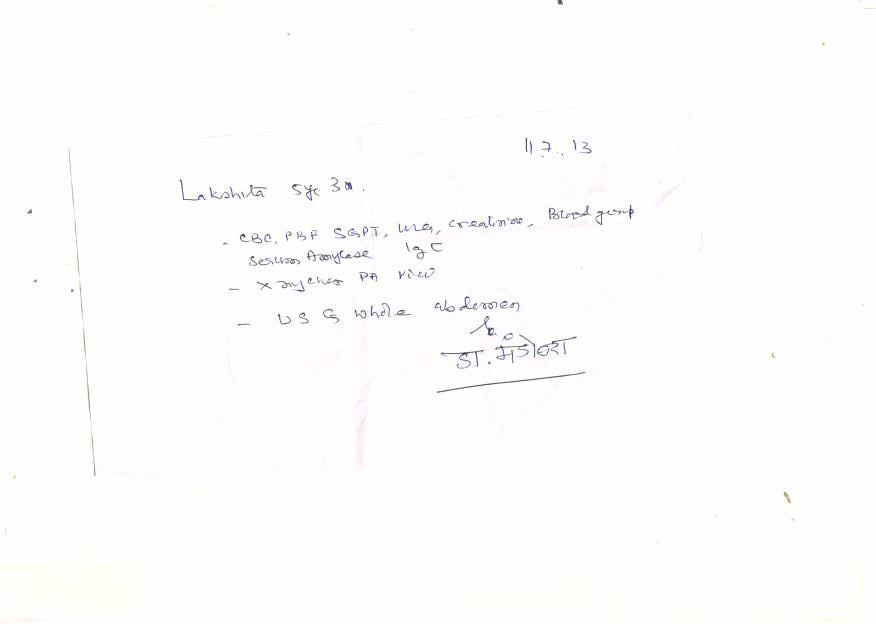 11.7.13
Lakshita 5yr
- CBC, PBF SGPT, creatinine, Blood group
Serum Amylase IgE
- X ray chest PA view
- USG whole abdomen
डा.